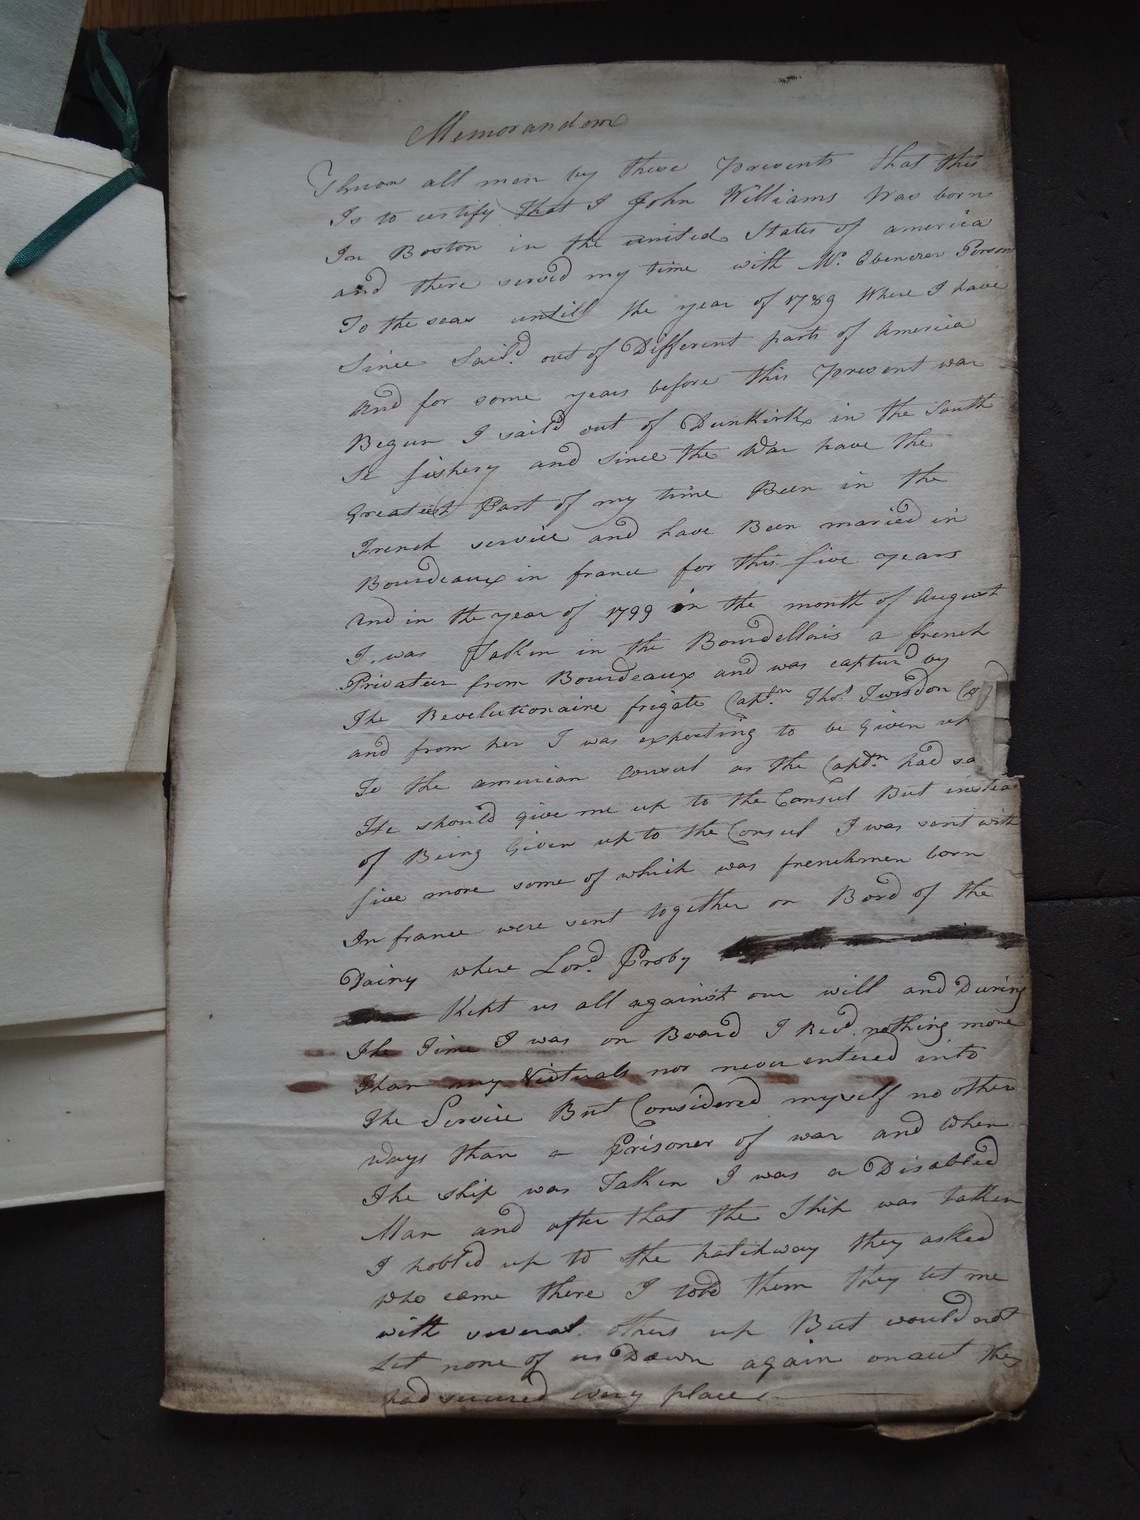 Memorandom
Thnow all men by these presents that this
Is to certify that I John Williams was born
In Boston in the united States of america
and there servd my time with Mr. Ebenezer Person
To the seas untill the year of 1789 Where I have
Since Saild out of Different parts of America
And for some years before this present war
Begun I saild out of Dunkirk in the South
Se fishery and since the War have the
Greatest Part of my time Been in the
French service and have Been maried in
Bourdeaux in france for this five years
And in the year of 1799 in the month of August
I was Taken in the Bourdellais a french
Privateer from Bourdeaux and was capturd by
The Revelutionaire frigate Captn. Thos. Twisdon
and from her I was expecting to be Given up
To the american consul as the Captn had sa
He should give me up to the Consul But instea
of Being Given up to the Consul I was sent with
five more some of which was frenchmen born
In france were sent together on Bord of the
Dainy where Lord Proby
Kept us all against our will and During
The Time I was on Board I Recd. nothing more
Than my Victuals nor never entered into
The Service But Considered myself no other
Ways than a Prisoner of war and when
The ship was Taken I was a Disabled
Man and after that the Ship was taken
I hobld up to the hatchway they asked
who came there I told them they let me
with several others up But would not
Let none of us Down again onant they
had secured every place